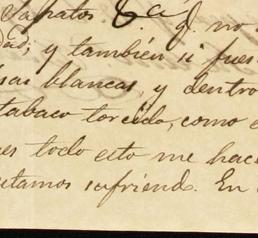 Sapatos. &a q. no
dad; y tambien si pues
sas blancas, y dentro
tabaco torcido, como
es todo esto me hac
stamos sufriendo. En